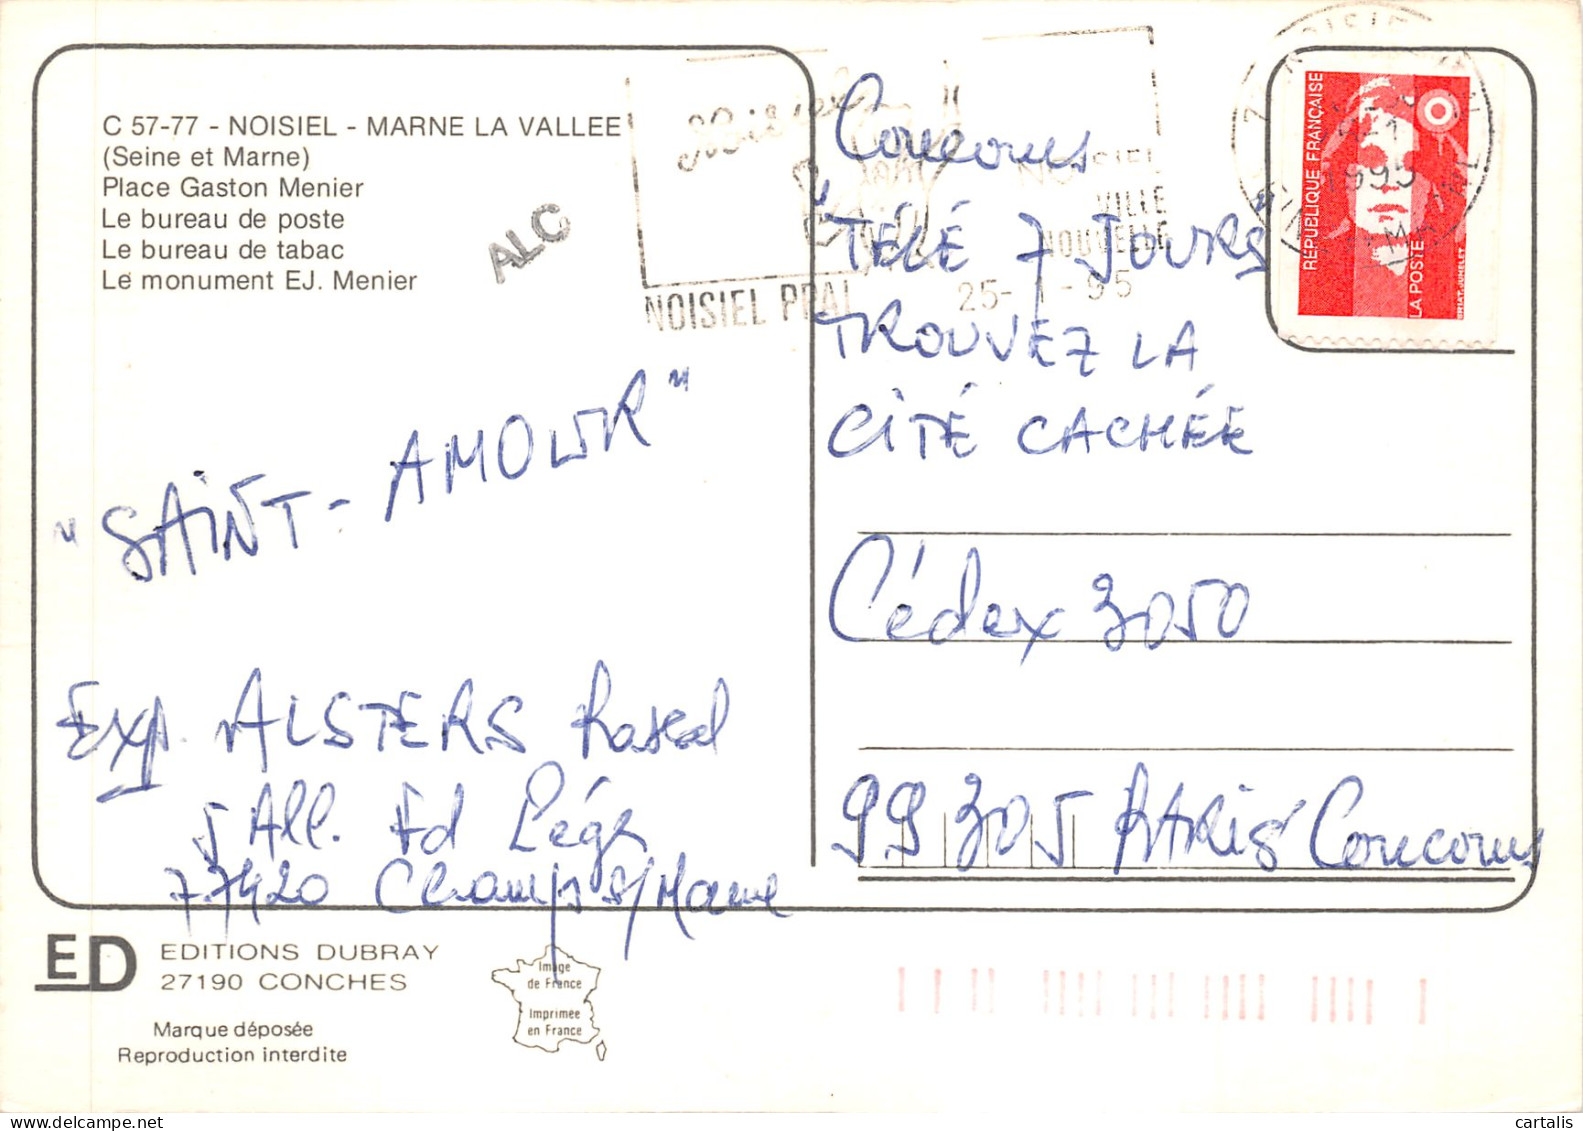 C 57-77 - NOISIEL - MARNE LA VALLEE
(Seine et Marne)
Place Gaston Menier
Le bureau de poste
Le bureau de tabac
Le monument EJ. Menier
ALC
NOISIEL
VILLE
NOUVELLE
NOISIEL PPAL 25-1-95
1995
REPUBLIQUE FRANÇAISE
LA POSTE
"SAINT-AMOUR"
Exp. ALSTERS
5 All. Ed
77420 Champs s/Marne
Concours
"TÉLÉ 7 JOURS"
TROUVEZ LA
CITÉ CACHÉE
Cédex 3050
99305 PARIS Concours
ED
EDITIONS DUBRAY
27190 CONCHES
Marque déposée
Reproduction interdite
Image
de France
Imprimée
en France
cartalis